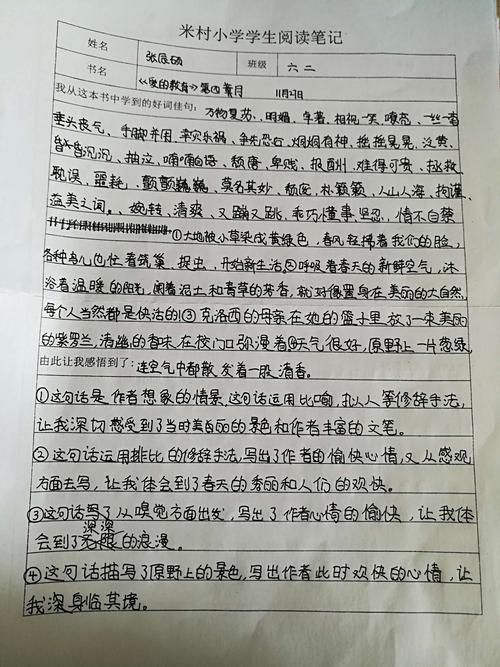 米村小学学生阅读笔记
姓名 张辰硕 班级 六二
书名 《爱的教育》第四章月 11月27日
我从这本书中学到的好词佳句：万物复苏、明媚、牵着、相视一笑、嘹亮、一丝一毫
垂头丧气、手脚并用、幸灾乐祸、争先恐后、炯炯有神、摇摇晃晃、泛黄、
昏昏沉沉、抽泣、喃喃自语、颓唐、卑贱、报酬、难得可贵、拯救
耽误、噩耗、颤颤巍巍、莫名其妙、杨医、朴簌簌、人山人海、拘谨、
溢美之词、婉转、清爽、又蹦又跳、乖巧懂事、坚忍、情不自禁
①大地被小草染成黄绿色，春风轻拂着我们的脸，
各种鸟儿也忙着筑巢、捉虫，开始新生活②呼吸着春天的新鲜空气，沐
浴着温暖的阳光，闻着泥土和青草的芳香，就好像置身在美丽的大自然，
每个人当然都是快活的③克洛西的母亲在她的篮子里放了一束美丽
的紫罗兰，清幽的香味在校门口弥漫着④天气很好，原野上一片葱绿，
由此让我感悟到了：连空气中都散发着一股清香。
①这句话是作者想象的情景，这句话运用比喻，拟人等修辞手法，
让我深切感受到了当时美丽的景色和作者丰富的文笔。
②这句话运用排比的修辞手法，写出了作者的愉快心情，又从感观
方面去写，让我体会到了春天的秀丽和人们的欢快。
③这句话写了从嗅觉方面出发，写出了作者心情的愉快，让我体
深深
会到了的浪漫。
④这句话描写了原野上的景色，写出作者此时欢快的心情，让
我深身临其境。